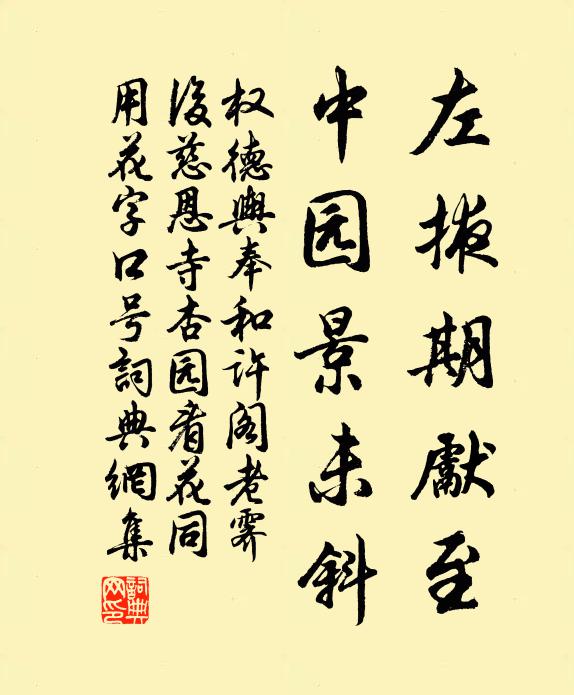 左掖期獻至
中园景未斜
权德舆奉和许阁老霁
後慈恩寺杏园看花同
用花字口号詞典網集
詞典网印